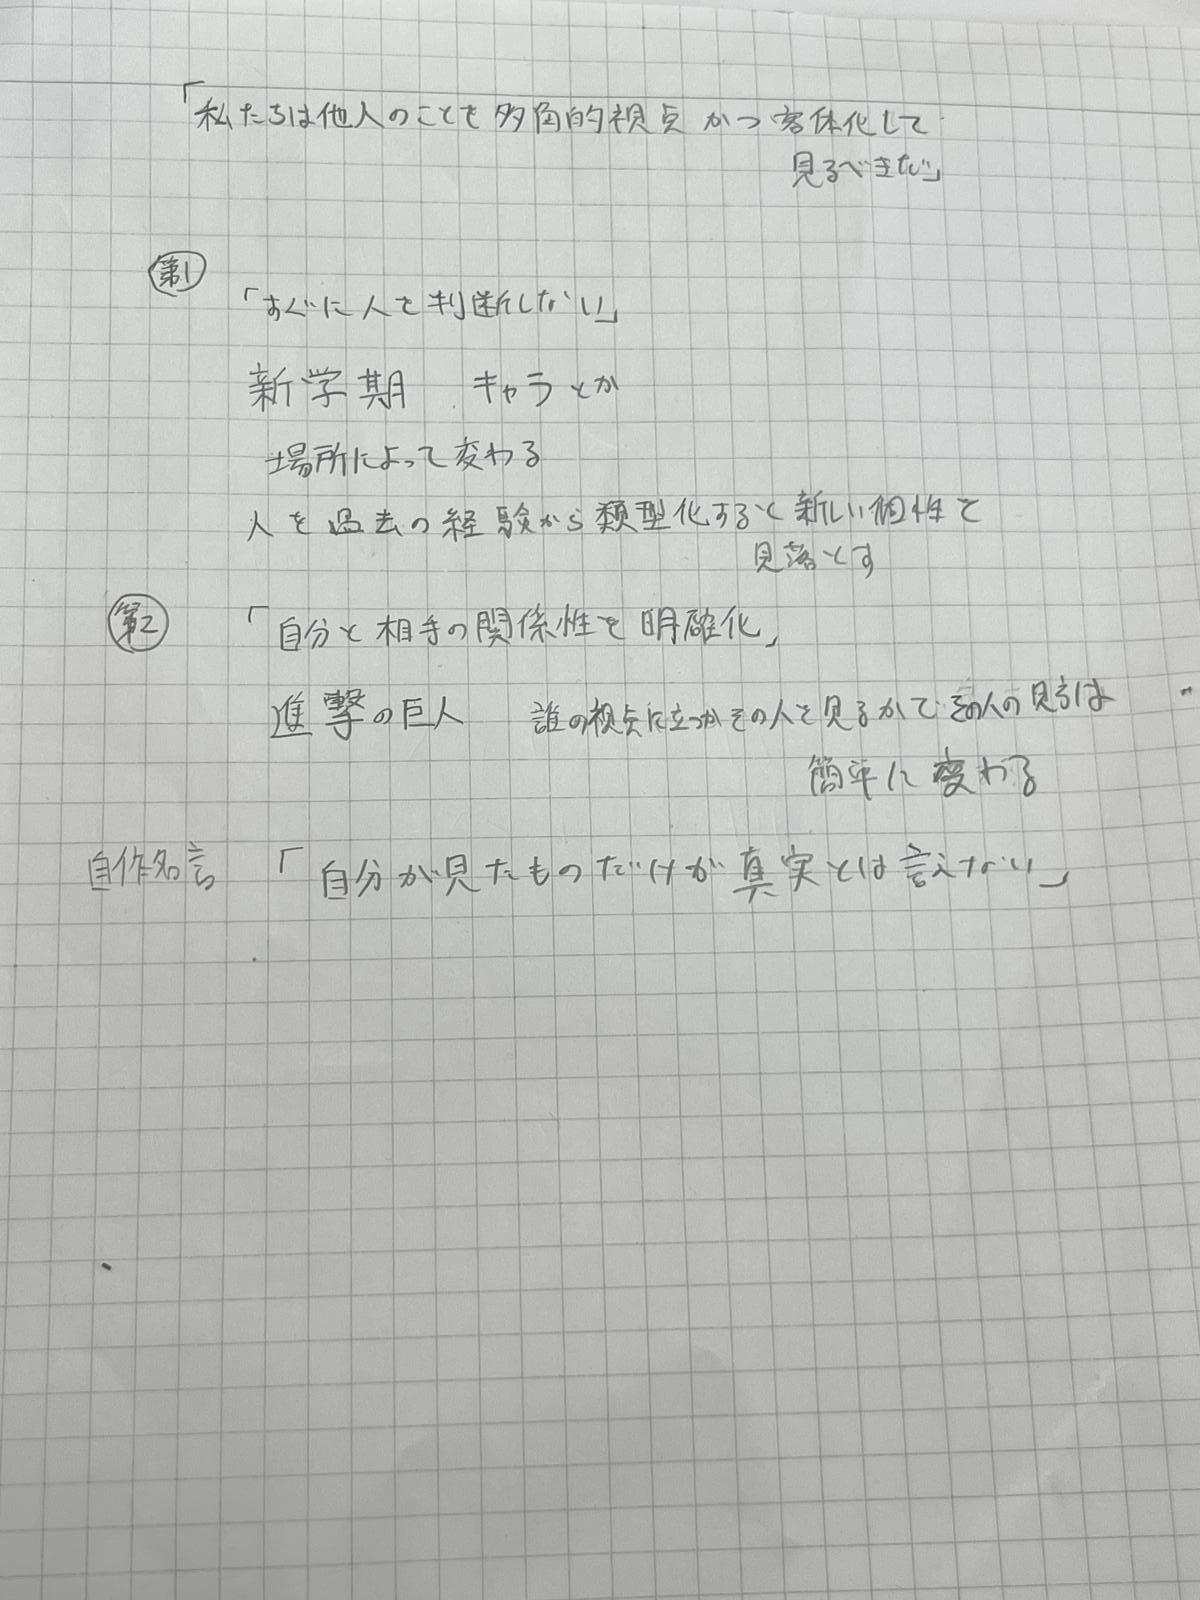 「私たちは他人のことを多角的視点かつ客体化して
見るべきだ」
第1
「すぐに人を判断しない」
新学期 キャラとか
場所によって変わる
人を過去の経験から類型化すると新しい個性を
見落とす
第2
「自分と相手の関係性を明確化」
進撃の巨人 誰の視点に立つかその人を見るかでその人の見方は
簡単に変わる
自作名言 「自分が見たものだけが真実とは言えない」